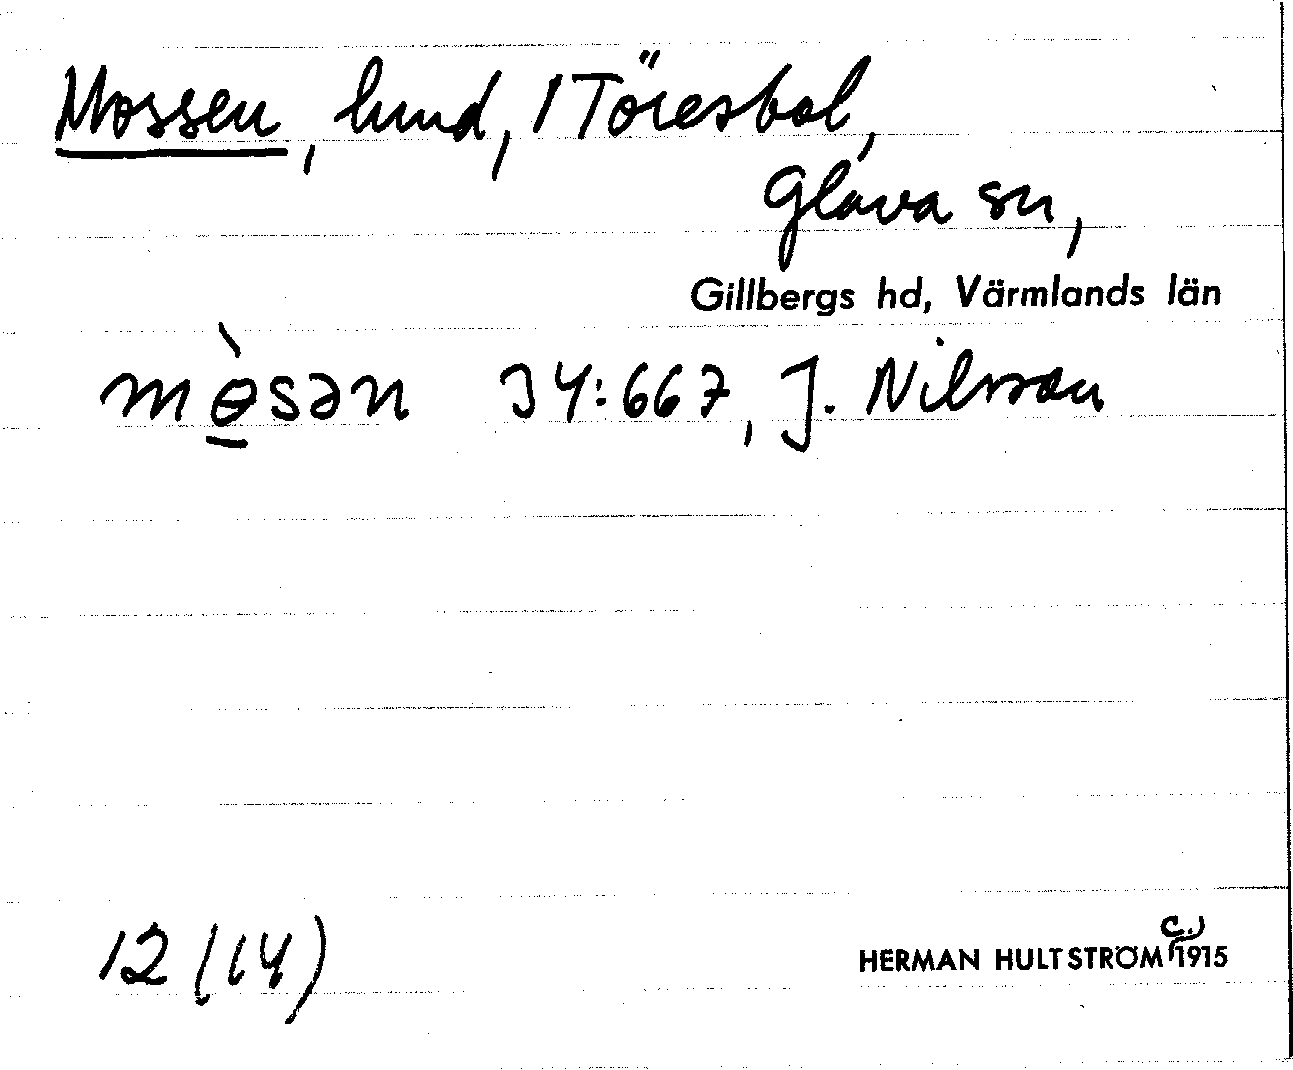 Mossen, lund, 1 Töresbol,
Glava sn,
Gillbergs hd, Värmlands län
mɵ̀sən 34:667, J. Nilsson
12 (14)
HERMAN HULTSTRÖM c.) 1915